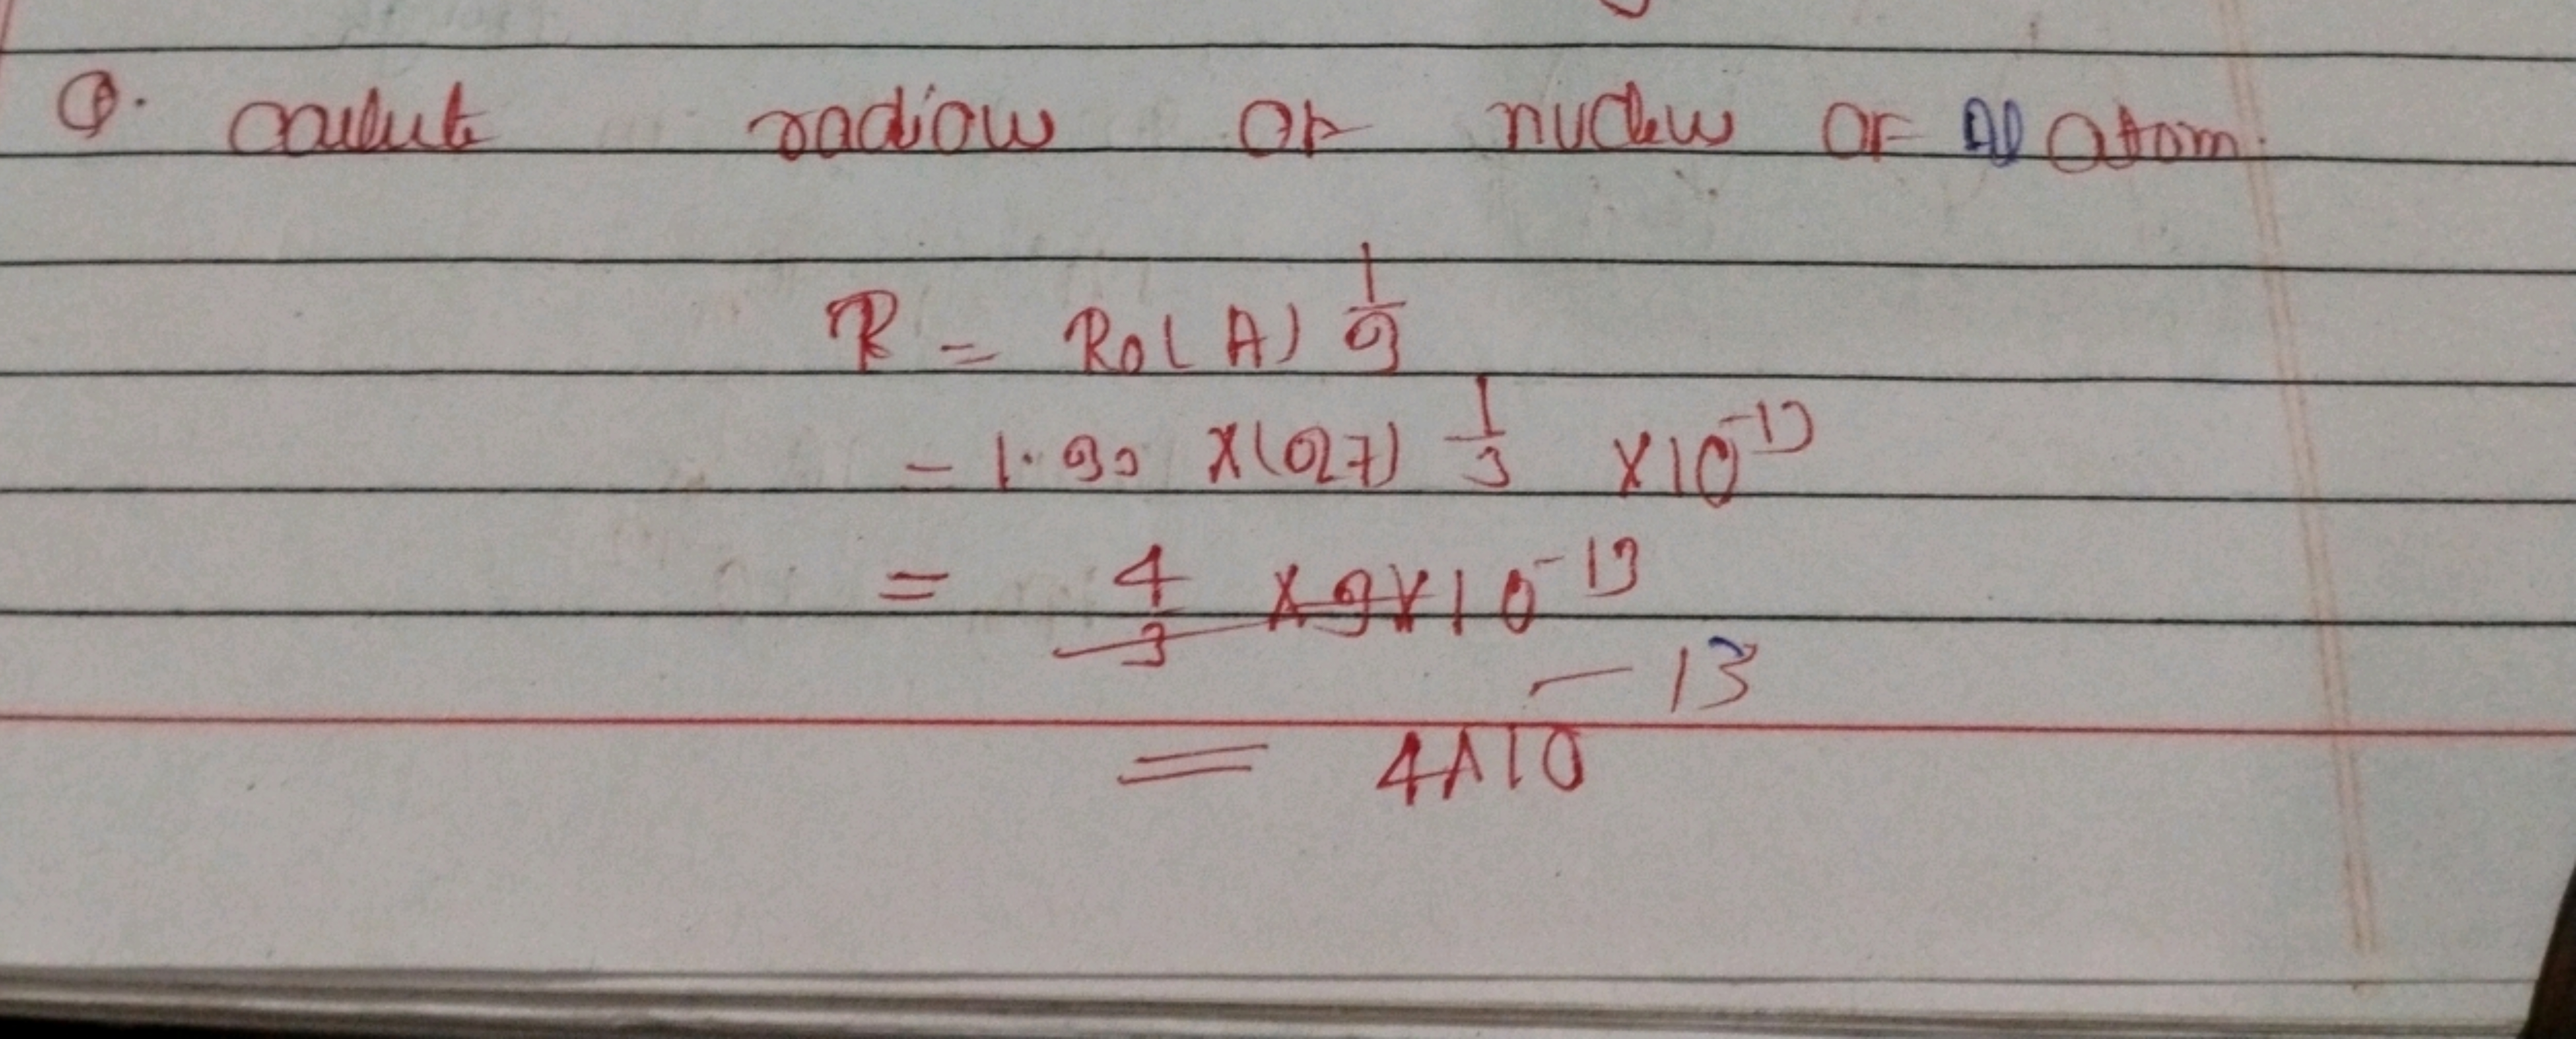 Q. calculate radious of nucleus of Al atom.
R = R0 (A) 1/3
= 1.33 x (27) 1/3 x 10^-13
= 4/3 x 3 x 10^-13
= 4 x 10^-13